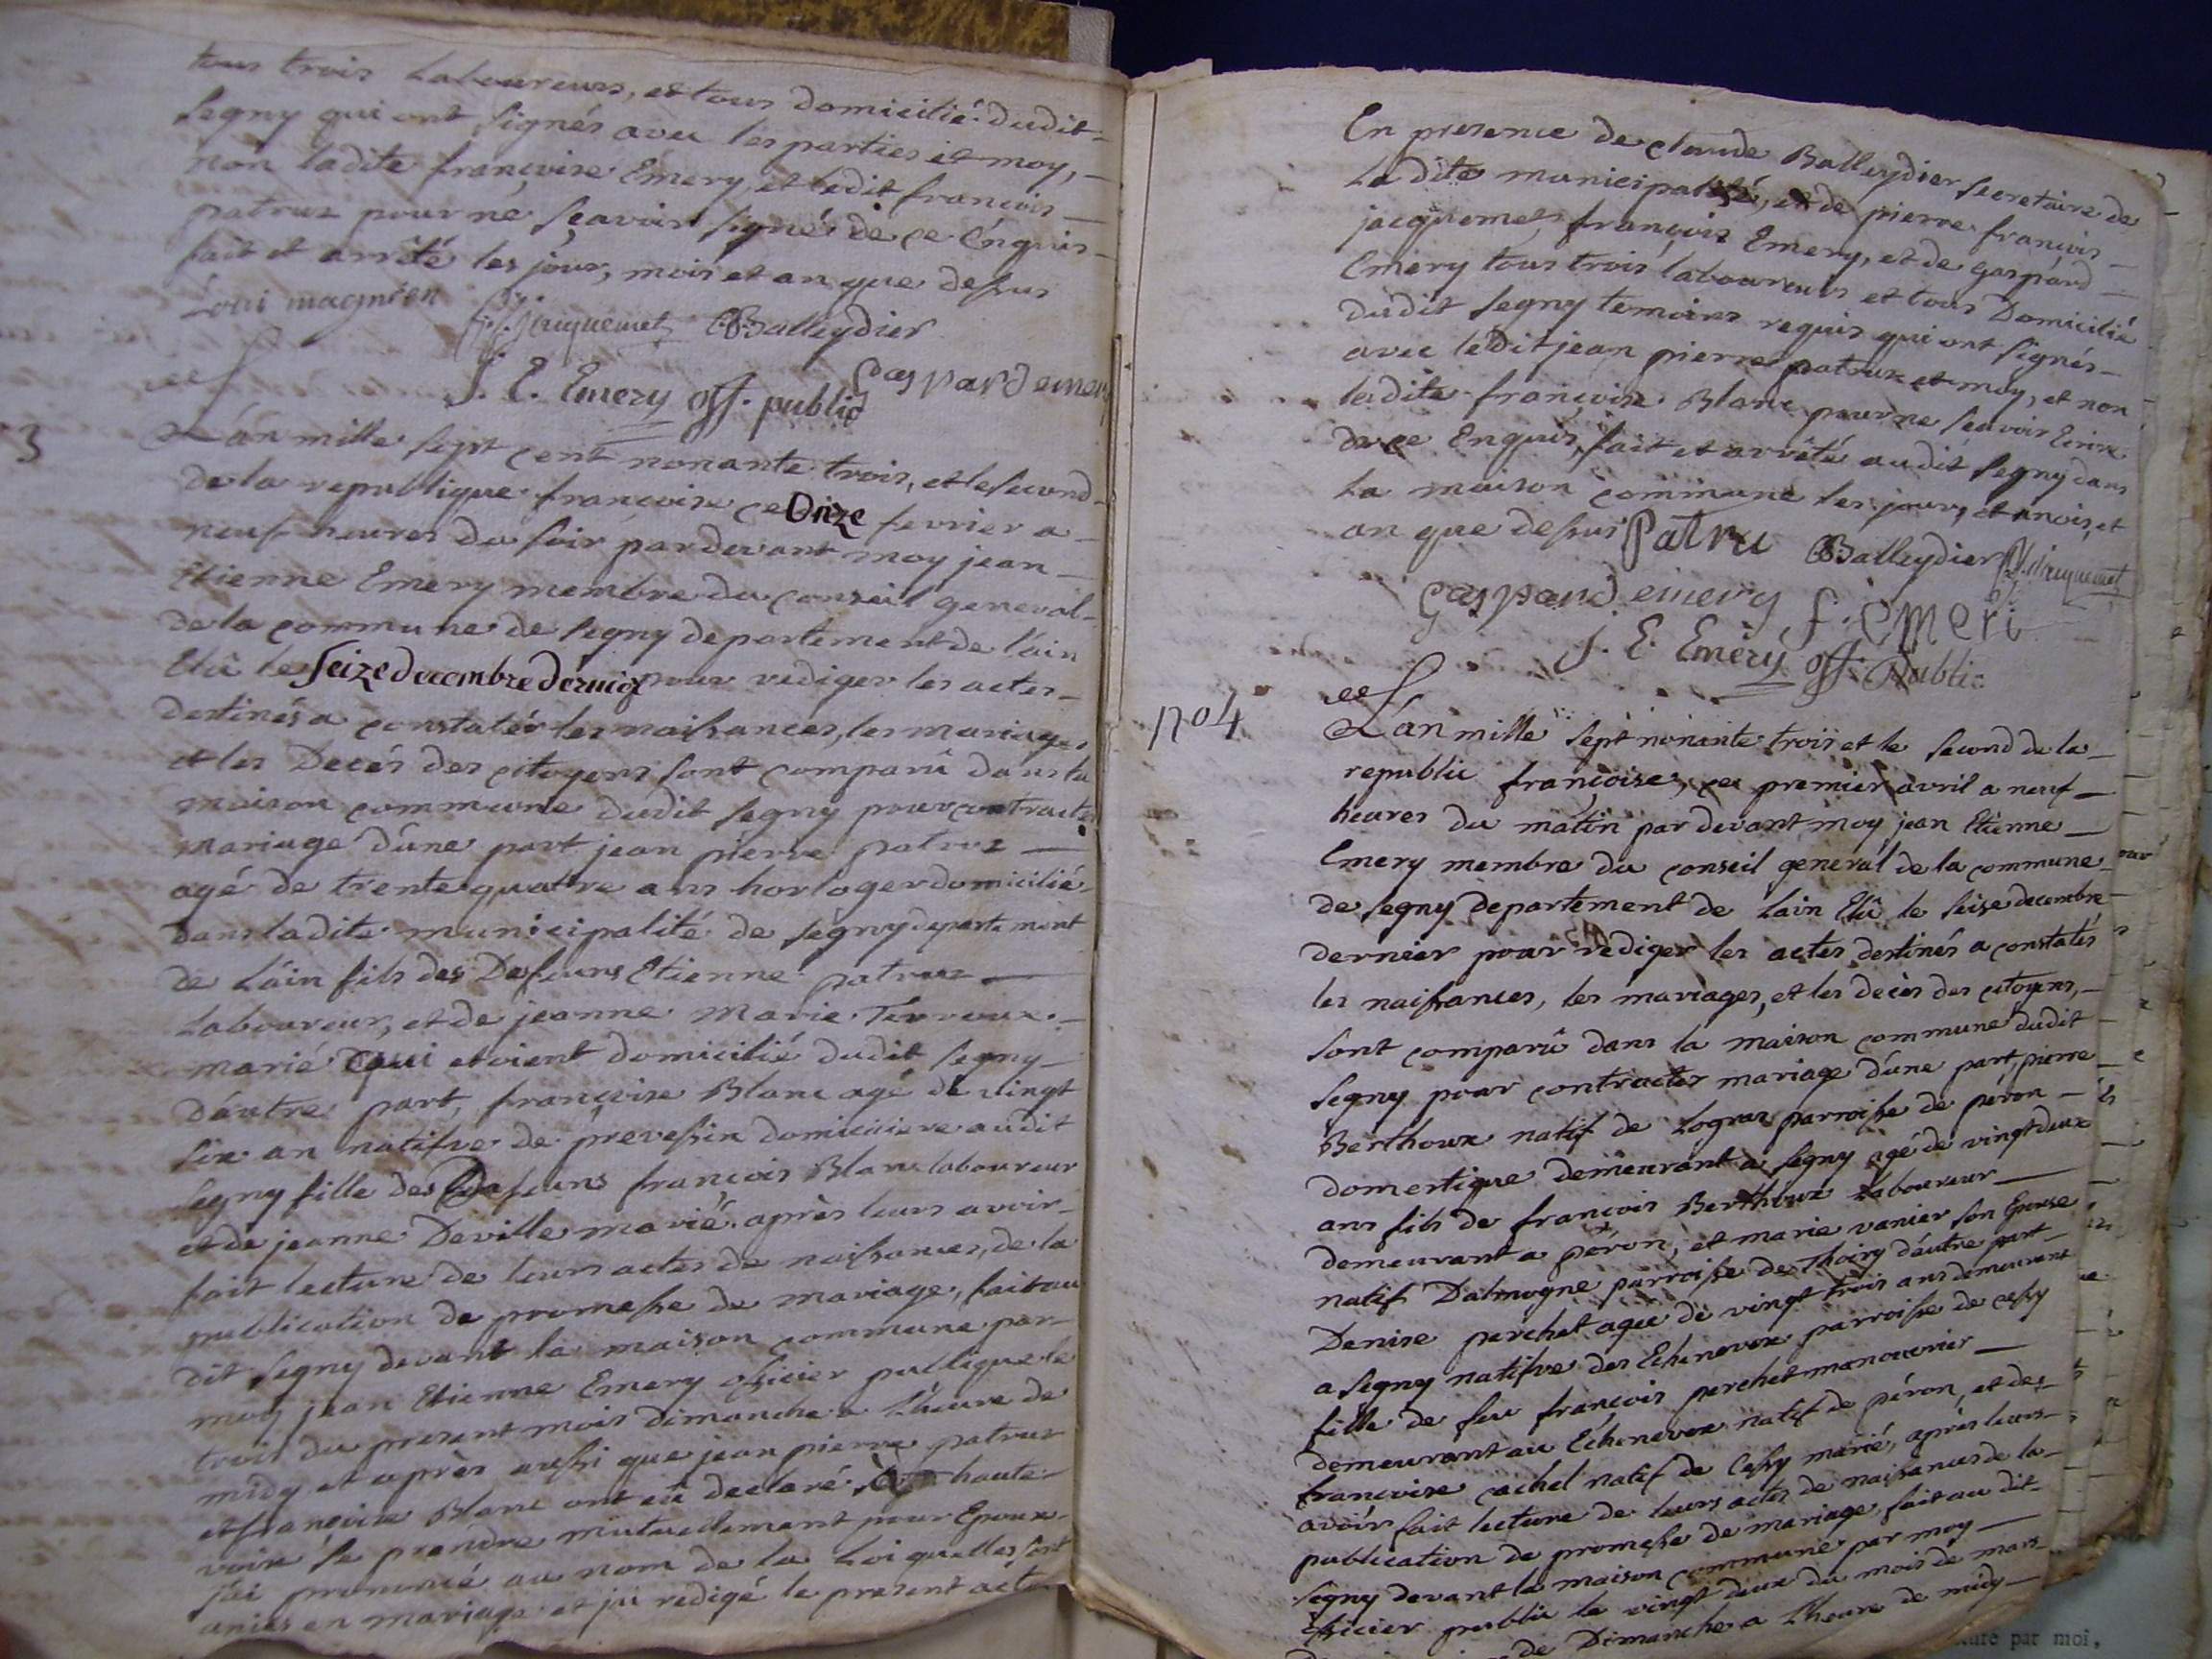 tous trois Laboureurs, et tous domicilié dudit
Segny qui ont signés avec les parties et moy,
non ladite françoise Emery, et ledit francois
patruz pour ne sçavoir signés de ce Enquis
fait et arrêté les jour, mois et an que dessus
Loui magnien p.f. Jaiquemet CBalleydier
gaspard emery
J. E. Emery off. public
3
L'an mille sept cent nonante trois, et le second
de la republique françoise ce Onze fevrier a
neuf heures du soir pardevant moy jean
Etienne Emery membre du conseil general
de la commune de Segny departement de l'ain
Elû le Seize decembre dernier pour rediger les actes
destinés a constatér les naissances, les mariages
et les Decés des citoyens sont comparû dans la
maison commune dudit Segny pour contracter
mariage d'une part jean pierre patruz
agé de trente quattre ans horloger domicilié
dans ladite municipalité de segny departement
de L'ain fils des Defauns Etienne patruz
Laboureur, et de jeanne Marie Terroux
marié qui etoient domicilié dudit Segny
d'autre part, françoise Blanc agé de vingt
six an natifve de prevessin domiciliere audit
Segny fille des Defauns françois Blanc laboureur
et de jeanne Deville marié. après leurs avoir
fait lecture de leurs actes de naissances, de la
publication de promesse de mariage, fait au
dit Segny devant la maison commune par
moy jean Etienne Emery officier publique le
trois du present mois dimanche a l'heure de
midy et après aussi que jean pierre patruz
et françoise Blanc ont eû declaré haute
voix se prendre mutuellement pour Epoux
j'ai prononcé au nom de la Loi quelles sont
unies en mariage et j'ai redigé le present acte
En presence de claude Balleydier secretaire de
La dite municipalité, et de pierre françois
jacquemet, françois Emery, et de gaspard
Emery tous trois laboureurs et tous Domicilié
dudit Segny temoins requis qui ont signés
avec ledit jean pierre patruz et moy, et non
ladite françoise Blanc pour ne sçavoir Ecrire
de ce Enquis, fait et arrêté audit Segny dans
La maison commune les jours, et mois, et
an que dessus Patru CBalleydier p.f. Jaiquemet
gaspard emery f. emeri
J. E. Emery off. Public
1704
L'an mille sept nonante trois et le second de la
republic françoise, ce premier avril a neuf
heures du matin par devant moy jean Etienne
Emery membre du conseil general de la commune
de Segny departement de Lain Elû le seize decembre
dernier pour rediger les actes destinés a constatés
les naissances, les mariages, et les decès des citoyens,
sont comparû dans la maison commune dudit
Segny pour contracter mariage d'une part, pierre
Berthoux natif de Logras parroisse de péron
domestique demeurant a Segny agé de vingt deux
ans fils de françois Berthoux Laboureur
demeurant a péron, et marie vanier son Epouse
natif Dalmogne parroisse de Thoiry d'autre part
Denise perchet agée de vingt trois ans demeurant
a Segny natifve des Echenevex parroisse de cessy
fille de feu françois perchet manouvrier
demeurant au Echenevex natif de péron, et de
françoise cachel natif de Cessy marié, après leurs
avoir fait lecture de leurs actes de naissances de la
publication de promesse de mariage, fait au dit
Segny devant la maison commune par moy
officier public le vingt deux du mois de mars
de Dimanche a l'heure de midy
par moi,